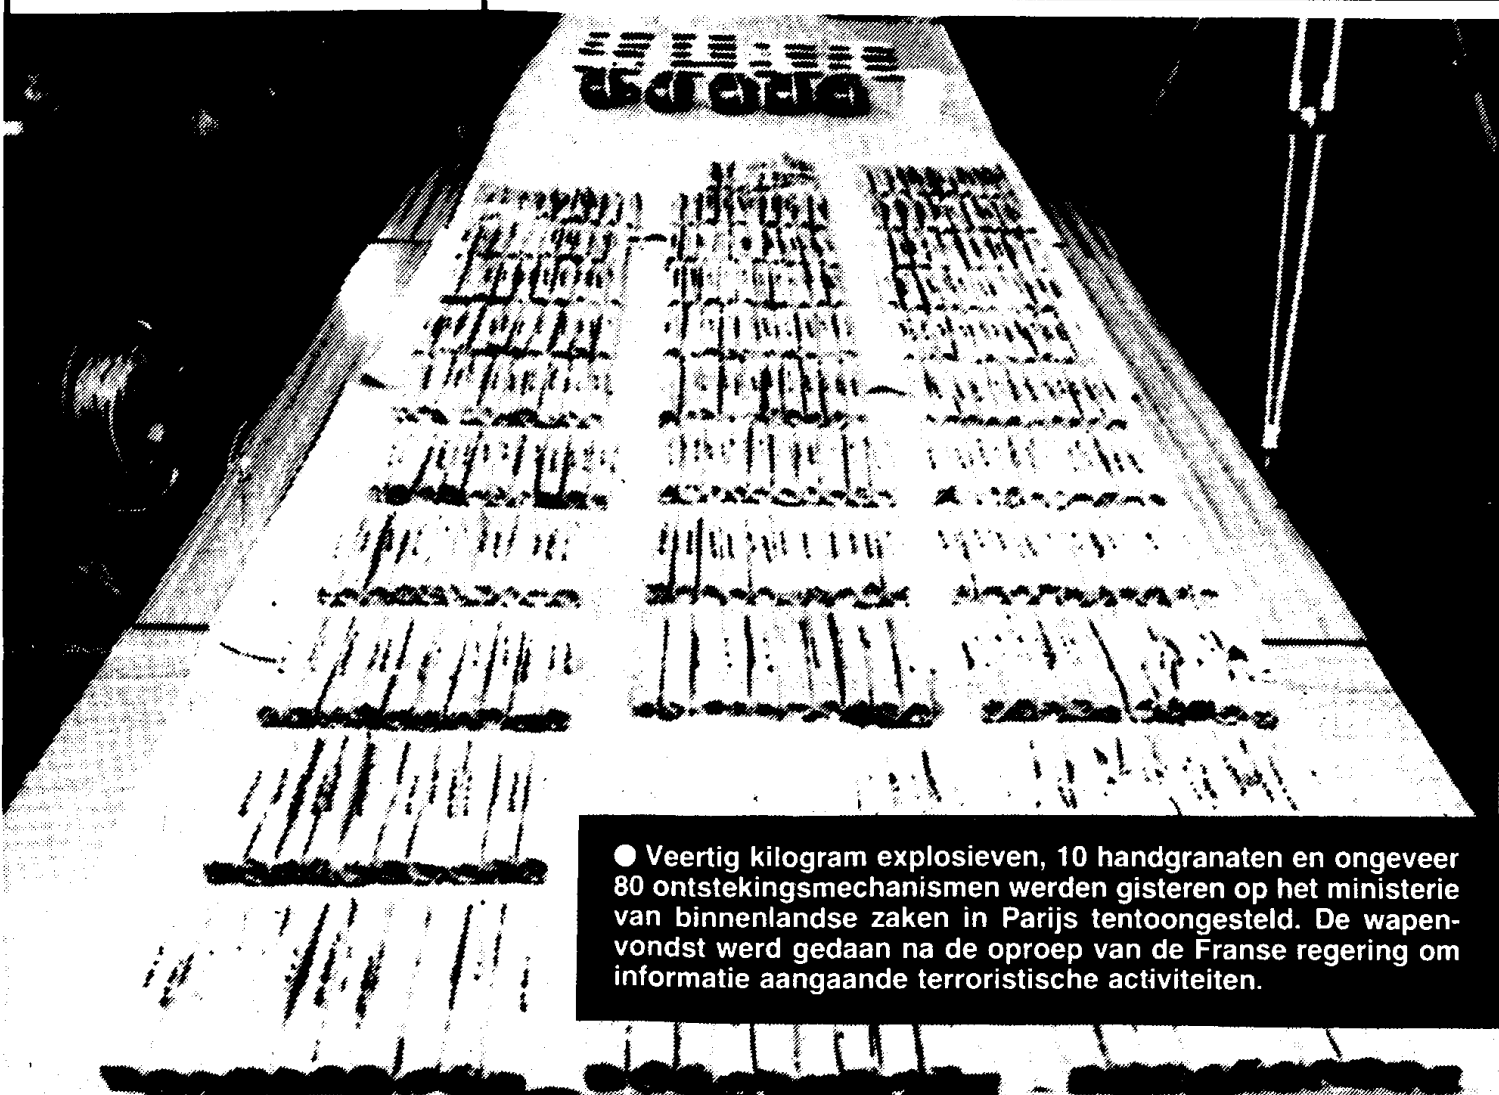 ● Veertig kilogram explosieven, 10 handgranaten en ongeveer
80 ontstekingsmechanismen werden gisteren op het ministerie
van binnenlandse zaken in Parijs tentoongesteld. De wapen-
vondst werd gedaan na de oproep van de Franse regering om
informatie aangaande terroristische activiteiten.